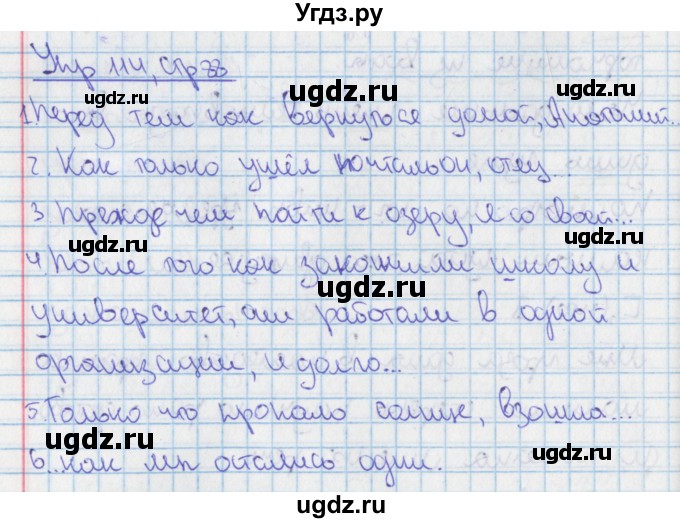 Угдз.ру
Упр 114, стр 83
1. Перед тем как вернуться домой, Анатолий..
2. Как только ушёл почтальон, отец...
3 Прежде чем пойти к озеру, я со своей...
4. После того как закончили школу и
университет, они работали в одной
организации, и долго...
5. Только что пропало солнце, взошла...
6...как мы остались одни.
ugdz.ru
ugdz.ru
ugdz.ru
ugdz.ru
ugdz.ru
ugdz.ru
ugdz.ru
ugdz.ru
ugdz.ru
ugdz.ru
ugdz.ru
ugdz.ru
ugdz.ru
ugdz.ru